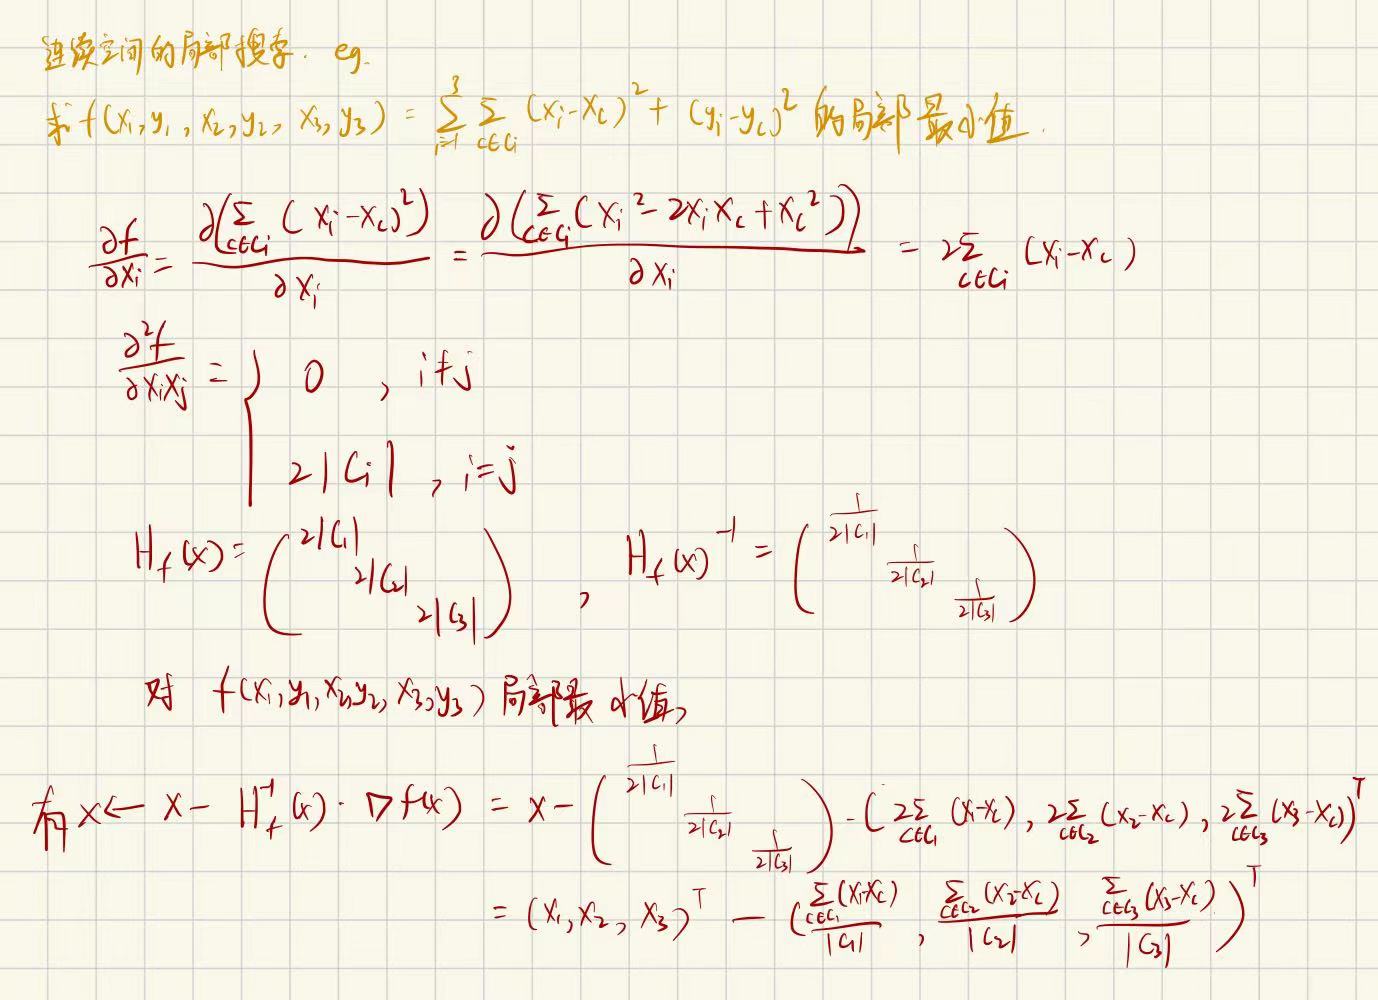 连续空间的局部搜索. eg.
求 f(x₁,y₁,x₂,y₂,x₃,y₃) = ∑_{i=1}^{3} ∑_{c∈C_i} (x_i-x_c)² + (y_i-y_c)² 的局部最小值.
∂f/∂x_i = ∂(∑_{c∈C_i} (x_i-x_c)²)/∂x_i = ∂(∑_{c∈C_i} (x_i²-2x_i x_c+x_c²))/∂x_i = 2∑_{c∈C_i} (x_i-x_c)
∂²f/∂x_i x_j = { 0 , i≠j
2|C_i| , i=j
H_f(x) = ( 2|C₁| 2|C₂| 2|C₃| ) , H_f(x)⁻¹ = ( 1/2|C₁| 1/2|C₂| 1/2|C₃| )
对 f(x₁,y₁,x₂,y₂,x₃,y₃) 局部最小值,
有 x ← x - H_f⁻¹(x) · ∇f(x) = x - ( 1/2|C₁| 1/2|C₂| 1/2|C₃| ) · ( 2∑_{c∈C₁} (x₁-x_c), 2∑_{c∈C₂} (x₂-x_c), 2∑_{c∈C₃} (x₃-x_c) )ᵀ
= (x₁,x₂,x₃)ᵀ - ( ∑_{c∈C₁} (x₁-x_c)/|C₁| , ∑_{c∈C₂} (x₂-x_c)/|C₂| , ∑_{c∈C₃} (x₃-x_c)/|C₃| )ᵀ